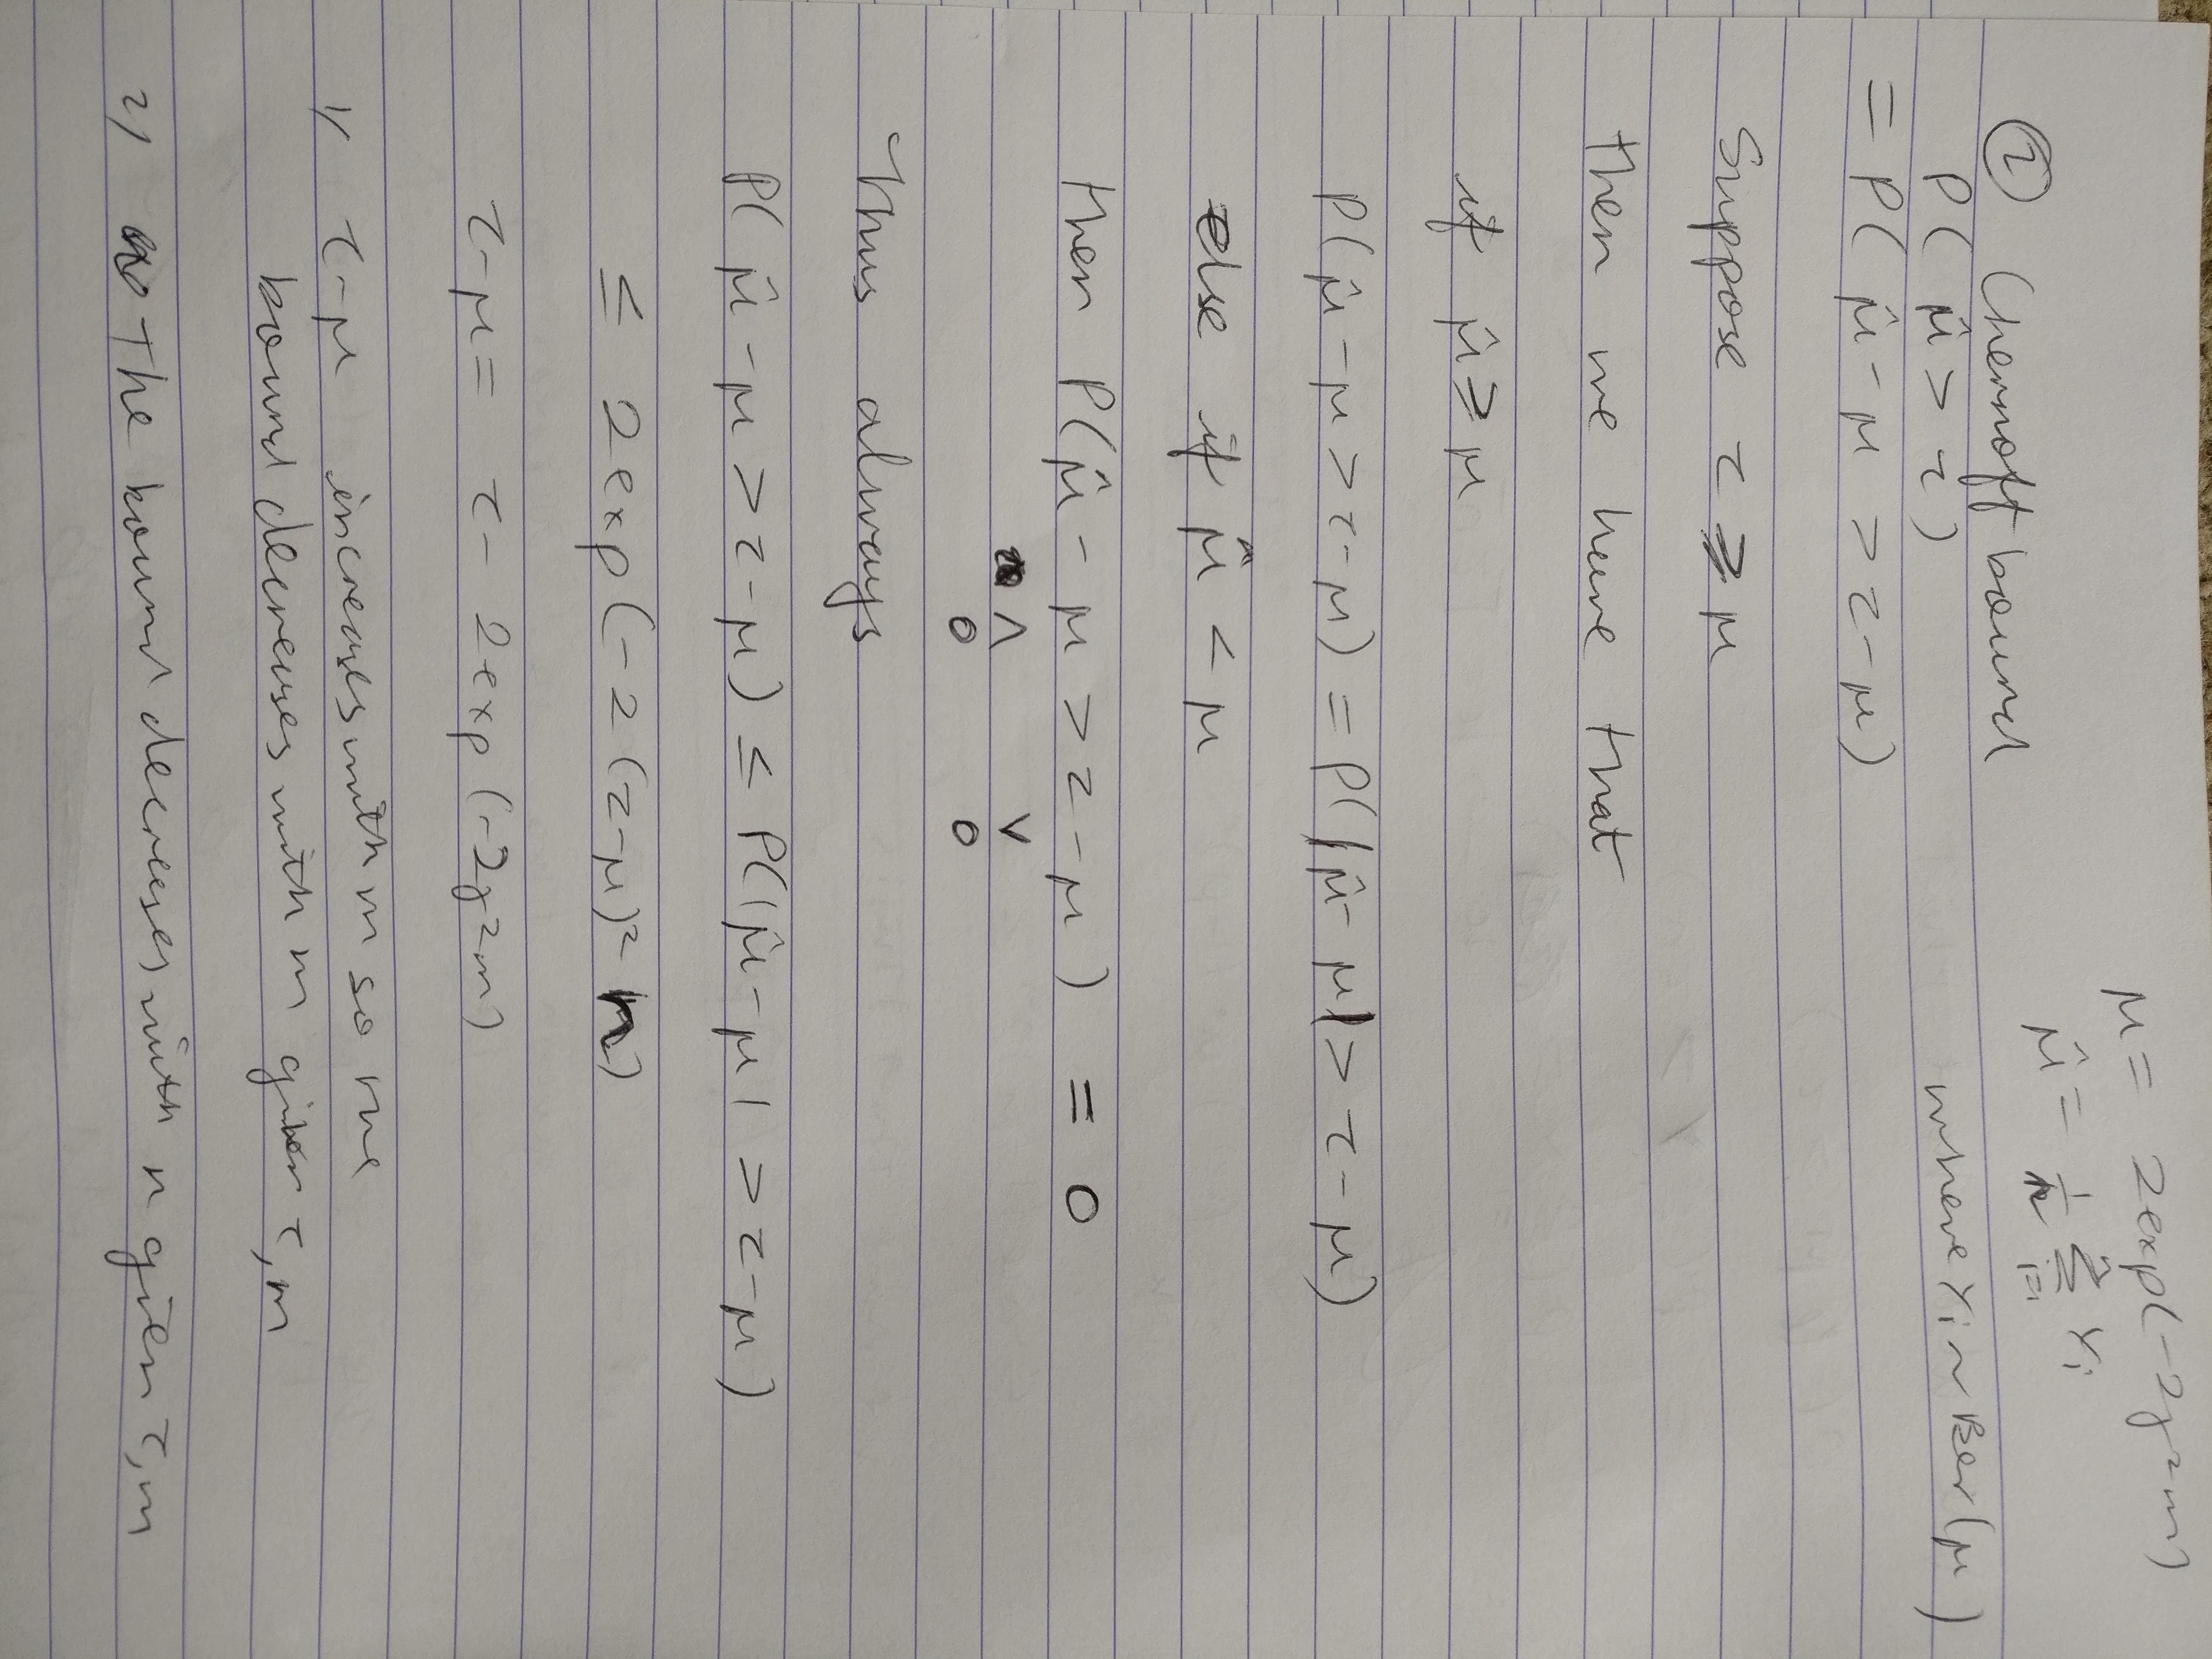 μ = 2exp(-2γ²m)
② Chernoff bound
μ̂ = 1/n Σ_{i=1}^n Yᵢ
P(μ̂ > τ) where Yᵢ ~ Ber(μ)
= P(μ̂ - μ > τ - μ)
Suppose τ ≥ μ
then we have that
if μ̂ ≥ μ
P(μ̂ - μ > τ - μ) = P(|μ̂ - μ| > τ - μ)
else if μ̂ < μ
then P(μ̂ - μ > τ - μ) = 0
∧ ∨
0 0
Thus always
P(μ̂ - μ > τ - μ) ≤ P(|μ̂ - μ| > τ - μ)
≤ 2exp(-2(τ-μ)² n)
τ-μ = τ - 2exp(-2γ²m)
1) τ-μ increases with m so the
bound decreases with m given τ, n
2) The bound decreases with n given τ, m